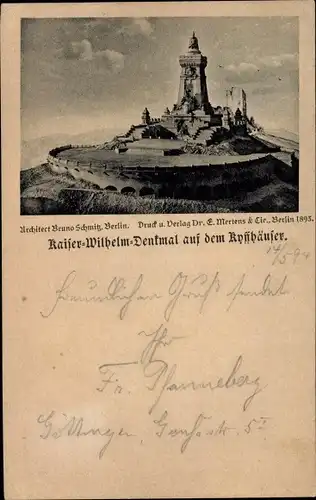 Architect Bruno Schmitz, Berlin. Druck u. Verlag Dr. E. Mertens & Cie., Berlin 1893.
Kaiser-Wilhelm-Denkmal auf dem Kyffhäuser.
14/5 94
Freundlichen Gruß sendet
Ihr
Fr. Pfanneberg
Göttingen,